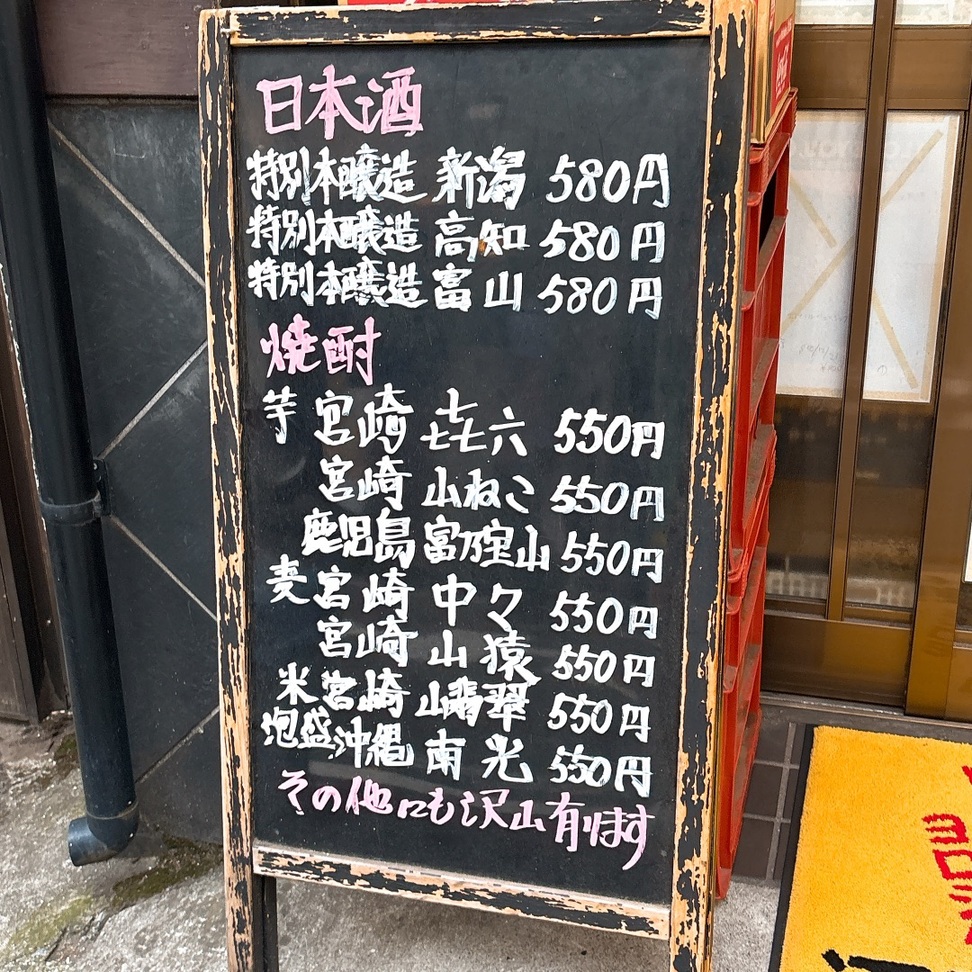 日本酒
特別本醸造 新潟 580円
特別本醸造 高知 580円
特別本醸造 富山 580円
焼酎
芋 宮崎 㐂六 550円
宮崎 山ねこ 550円
鹿児島 富乃宝山 550円
麦 宮崎 中々 550円
宮崎 山猿 550円
米 宮崎 山翡翠 550円
泡盛 沖縄 南光 550円
その他にも沢山有ります